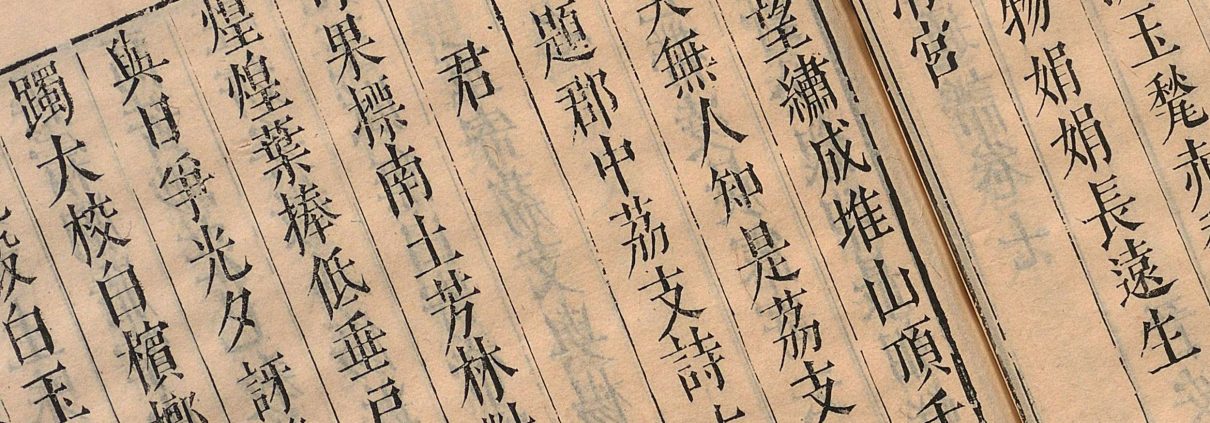 玉甃赤
物娟娟長遠生
宮
望繡成堆山頂千
笑無人知是荔支
題郡中荔支詩
君
果標南土芳林對
煌煌葉捧低垂戶
與日爭光夕訝
躅大校白檳榔
殼白玉